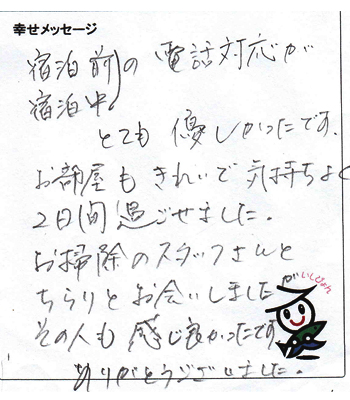 幸せメッセージ
宿泊前の 電話対応が
宿泊中
とても 優しかったです.
お部屋も きれいで 気持ちよく
2日間 過ごせました.
お掃除のスタッフさんと
ちらりと お会いしました
その人も 感じ良かったです
ありがとうございました.